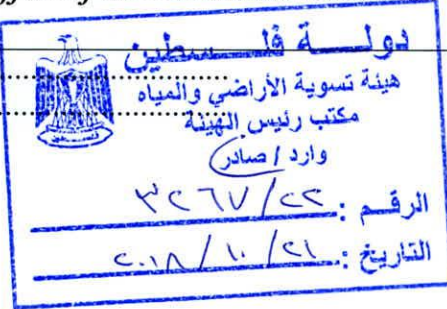 دولة فلسطين
هيئة تسوية الأراضي والمياه
مكتب رئيس الهيئة
وارد / صادر
الرقم : ٣٢٦٧/٢٢
التاريخ : ٢٠١٨/١٠/٢١